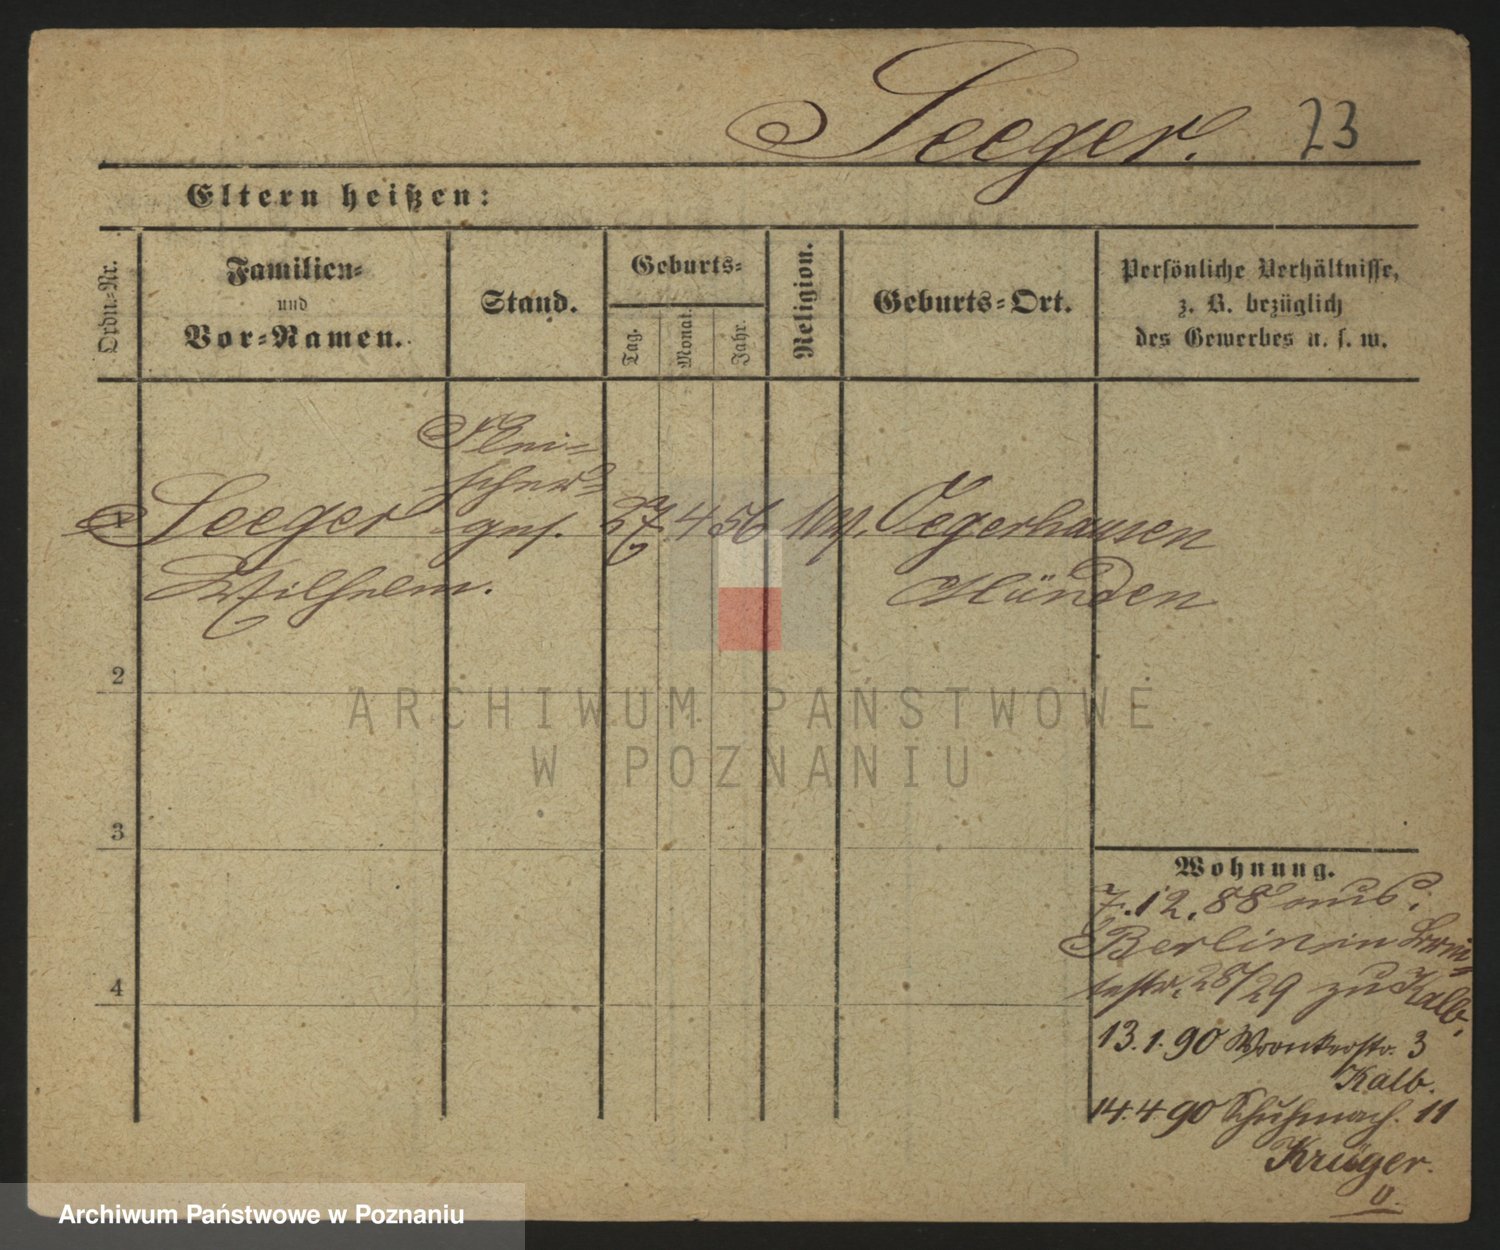 Seeger. 23
Eltern heißen:
Ordn=Nr.
Familien=
und
Vor=Namen.
Stand.
Geburts=
Tag.
Monat.
Jahr.
Religion.
Geburts=Ort.
Persönliche Verhältnisse,
z. B. bezüglich
des Gewerbes u. s. w.
Flei=
scher=
1 Seeger ges. 27 4 56 Oegerhausen
Wilhelm. Münden
2
3
4
ARCHIWUM PAŃSTWOWE
W POZNANIU
Wohnung.
7.12.88 aus:
Berlin in Brei=
testr. 28/29 zu Kalb.
13.1.90 Wronkerstr. 3
Kalb.
14.4.90 Schuhmach. 11
Krüger.
Archiwum Państwowe w Poznaniu